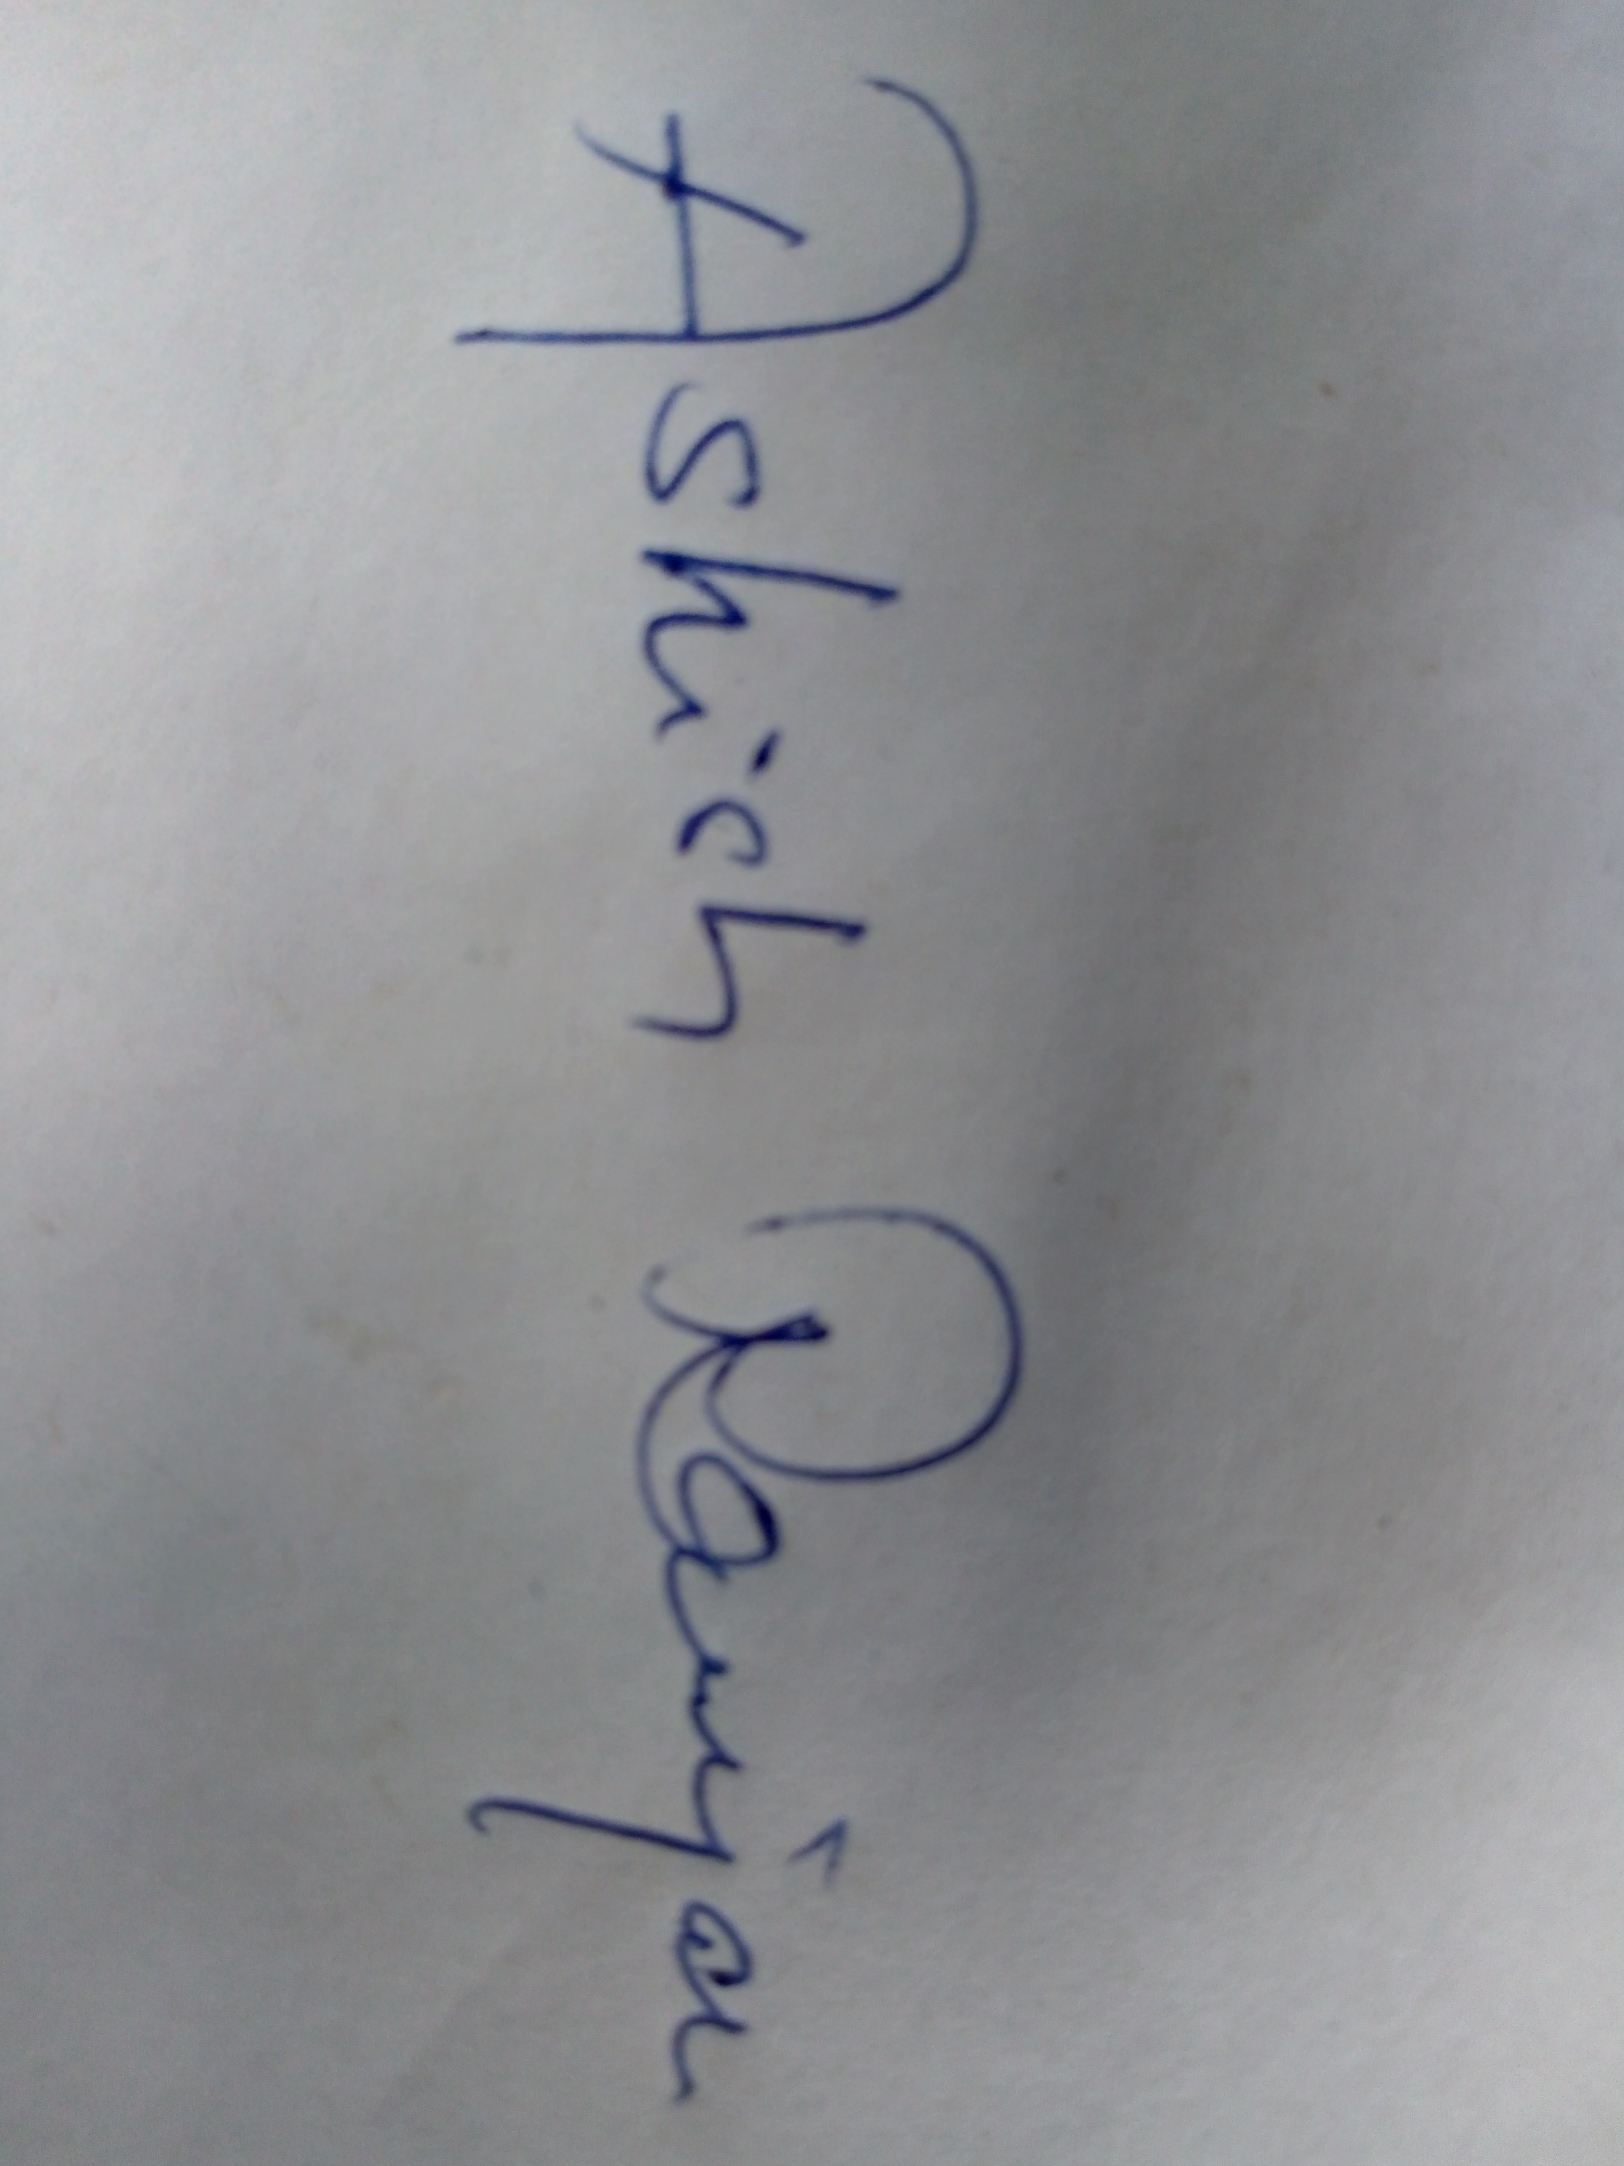 Ashish Ranjan